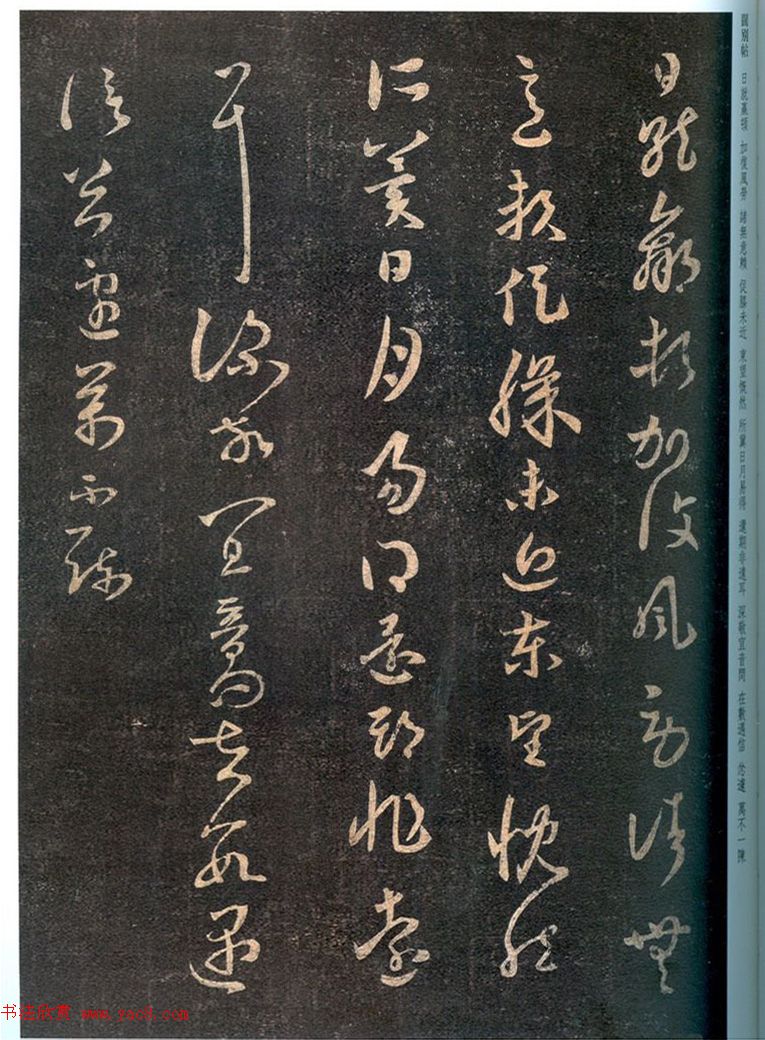 闊別帖 日就羸頓 加復風勞 諸無意賴 促膝未近 東望慨然 所冀日月易得 還期非遠耳 深敬宜音問 在數遇信 忩遽 萬不一陳
日就羸頓加復風勞諸無
意賴促膝未近東望慨然
所冀日月易得還期非遠
耳深敬宜音問在數遇
信忩遽萬不一陳
书法欣赏 www.yac8.com